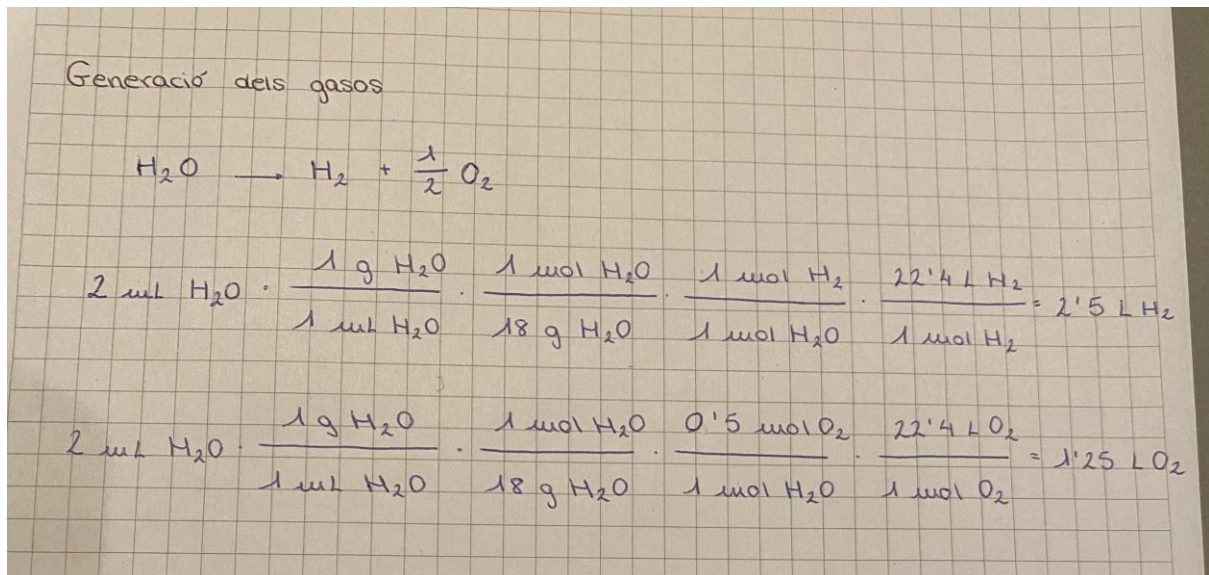 Generació dels gasos
H₂O → H₂ + 1/2 O₂
2 mL H₂O · 1 g H₂O / 1 mL H₂O · 1 mol H₂O / 18 g H₂O · 1 mol H₂ / 1 mol H₂O · 22'4 L H₂ / 1 mol H₂ = 2'5 L H₂
2 mL H₂O · 1 g H₂O / 1 mL H₂O · 1 mol H₂O / 18 g H₂O · 0'5 mol O₂ / 1 mol H₂O · 22'4 L O₂ / 1 mol O₂ = 1'25 L O₂